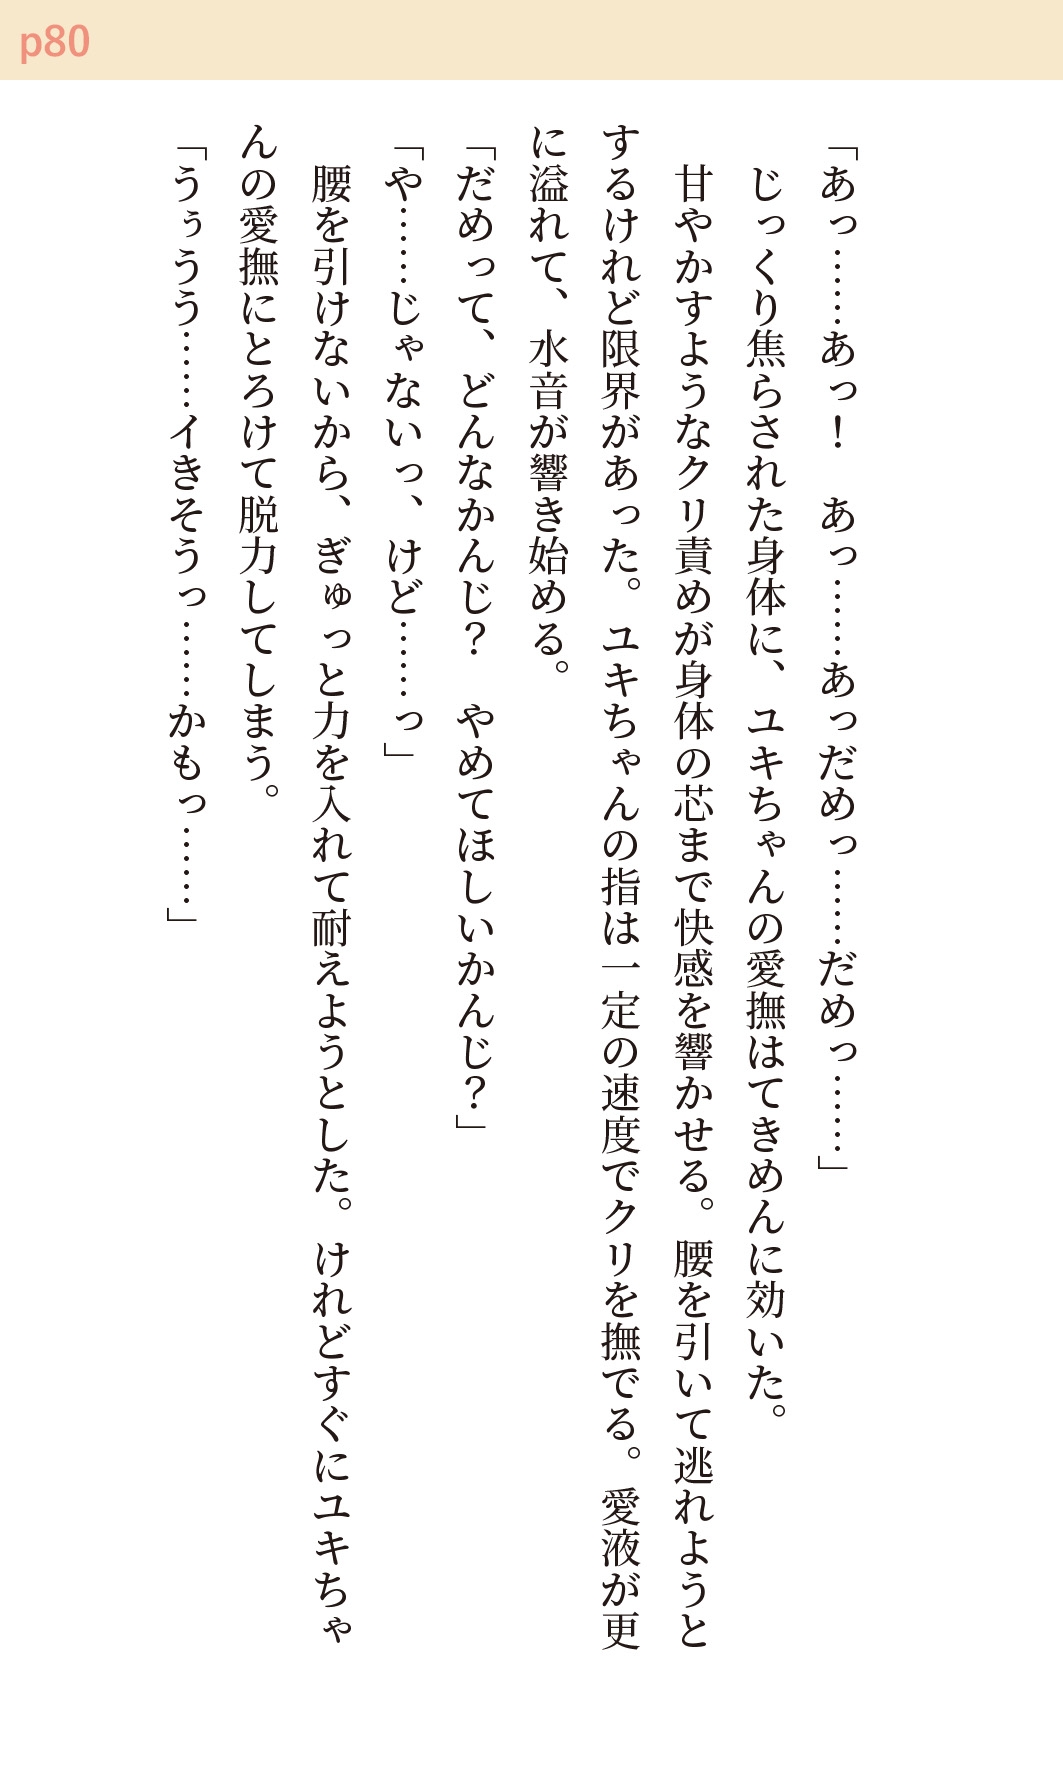 p80
「あっ……あっ！　あっ……あっだめっ……だめっ……」
　じっくり焦らされた身体に、ユキちゃんの愛撫はてきめんに効いた。
　甘やかすようなクリ責めが身体の芯まで快感を響かせる。腰を引いて逃れようと
するけれど限界があった。ユキちゃんの指は一定の速度でクリを撫でる。愛液が更
に溢れて、水音が響き始める。
「だめって、どんなかんじ？　やめてほしいかんじ？」
「や……じゃないっ、けど……っ」
　腰を引けないから、ぎゅっと力を入れて耐えようとした。けれどすぐにユキちゃ
んの愛撫にとろけて脱力してしまう。
「うぅうう……イきそうっ……かもっ……」